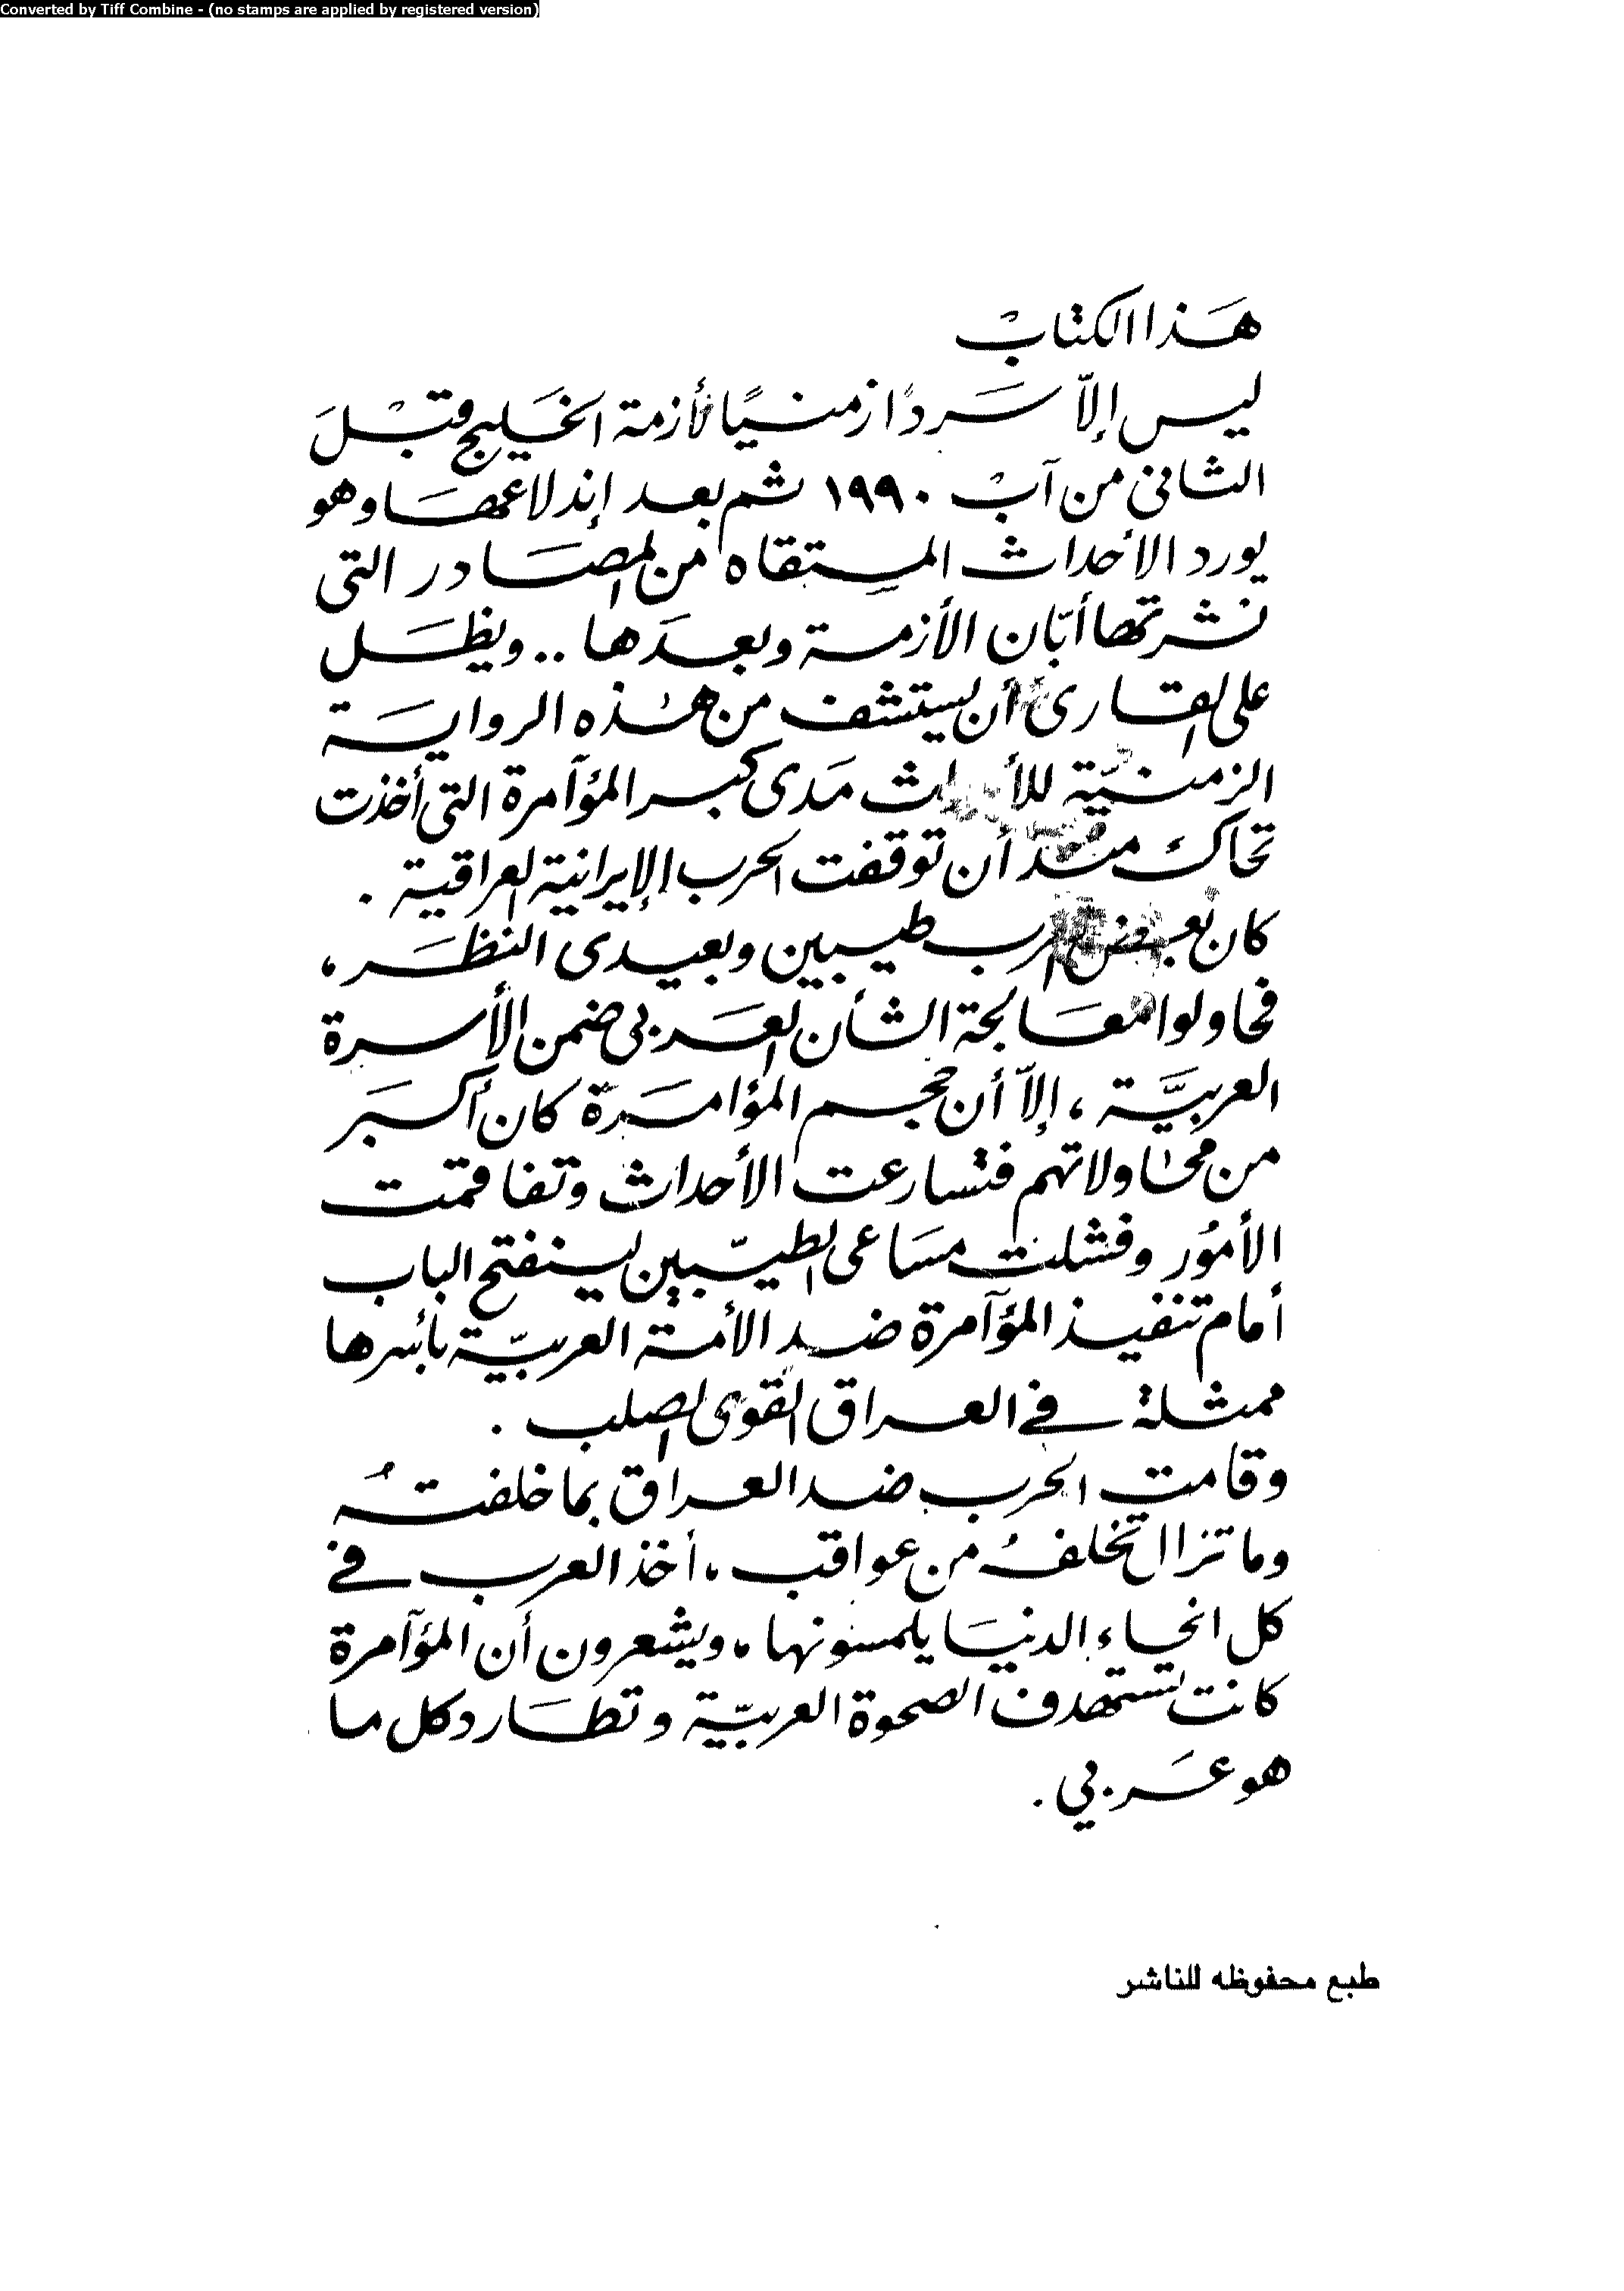 Converted by Tiff Combine - (no stamps are applied by registered version)
هَذا الكتابْ
ليس إلاّ سَردًا زمنيًا لأزمة الخَليج قبْلَ
الثاني من آبْ ١٩٩٠ ثم بعد إندلاعهَا وهو
يورد الأحداث المستقاه من المصَادر التي
نشرتها أبّان الأزمة وبعدَها .. ويظَل
على القارئ أن يستشف من هٰذه الروايَة
الزمنيّة للأحداث مَدى كبر المؤآمرة التي أخذت
تحاك منذ أن توقفت الحرب الإيرانية العراقية .
كان بعض العرب طيبين وبعيدى النظَر ،
فحاولوا معَالجة الشأن العَربي ضمن الأسرة
العربيَّة ، إلاّ أن حجم المؤامَرة كان أكبَر
من محاولاتهم فتسارعت الأحداث وتفاقمت
الأمُور وفشلت مسَاعى الطيّبين لينفتح الباب
أمام تنفيذ المؤآمرة ضد الأمة العربيّة بأسرها
ممثلة في العراق القوى الصلب .
وقامت الحرب ضد العراق بما خلفتهُ
وما تزال تخلفهُ من عواقب ، أخذ العرب في
كل انحاء الدنيَا يلمسونها ، ويشعرون أن المؤآمرة
كانت تستهدف الصحوة العربيّة وتطَارد كل ما
هو عَربي .
طبع محفوظه للناشر